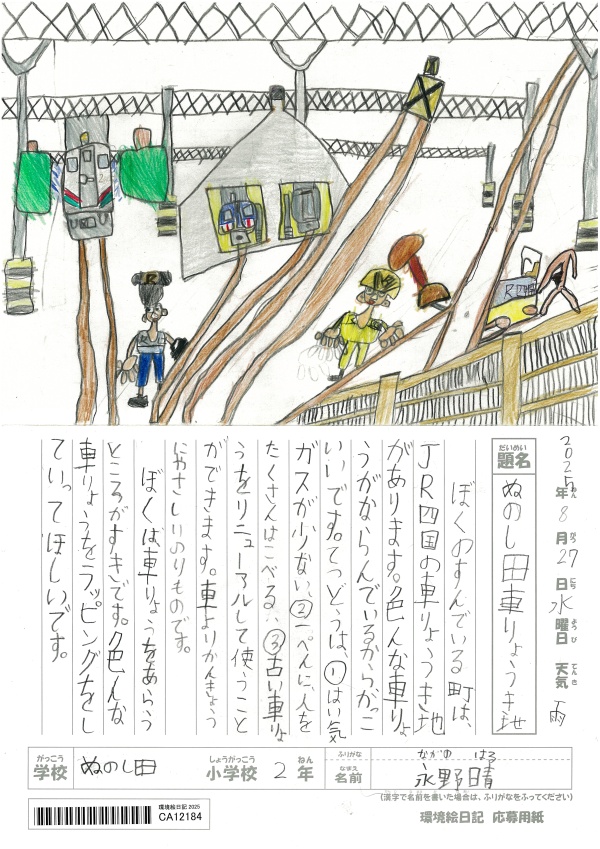 2025年8月27日水曜日 天気 雨
ねん がつ にち ようび てんき
だいめい
題名
ぬのし田車りょうき地
ぼくのすんでいる町は、
JR四国の車りょうき地
があります。色んな車りょ
うがならんでいるからかっこ
いいです。てつどうは、①はい気
ガスが少ない、②一ぺんに、人を
たくさんはこべる、③古い車りょ
うをリニューアルして使うこと
ができます。車よりかんきょう
にやさしいのりものです。
ぼくは、車りょうをあらう
ところがすきです。色んな
車りょうをラッピングをし
ていってほしいです。
がっこう しょうがっこう ねん ふりがな ながの はる
学校 ぬのし田 小学校 2年 なまえ 名前 永野晴
(漢字で名前を書いた場合は、ふりがなをふってください)
環境絵日記2025
CA12184
環境絵日記 応募用紙